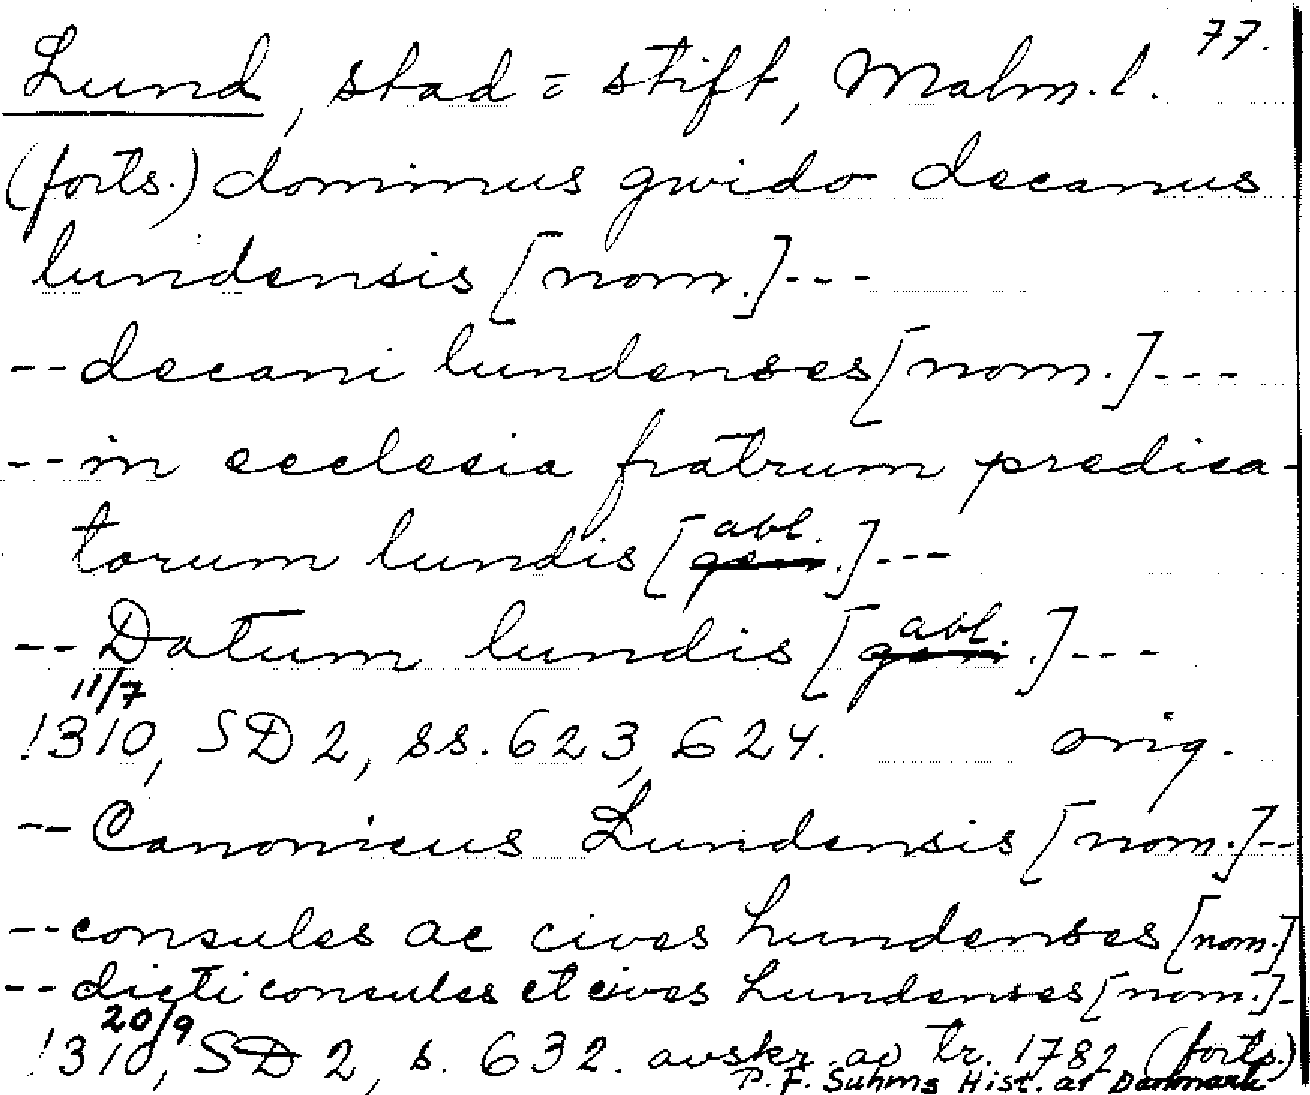 77.
Lund, stad = stift, Malm. l.
(forts.) dominus gwido decanus
lundensis [nom.] ---
-- decani lundenses [nom.] ---
-- in ecclesia fratrum predica-
abl.
torum lundis [gen.] ---
abl.
-- Datum lundis [gen.] ---
11/7
1310, SD 2, ss. 623, 624. orig.
-- Canonicus Lundensis [nom.] --
-- consules ac cives Lundenses [nom.]
-- dicti consules et cives Lundenses [nom.] -
20/9
1310, SD 2, s. 632. avskr. av tr. 1782 (forts.)
P. F. Suhms Hist. af Danmark